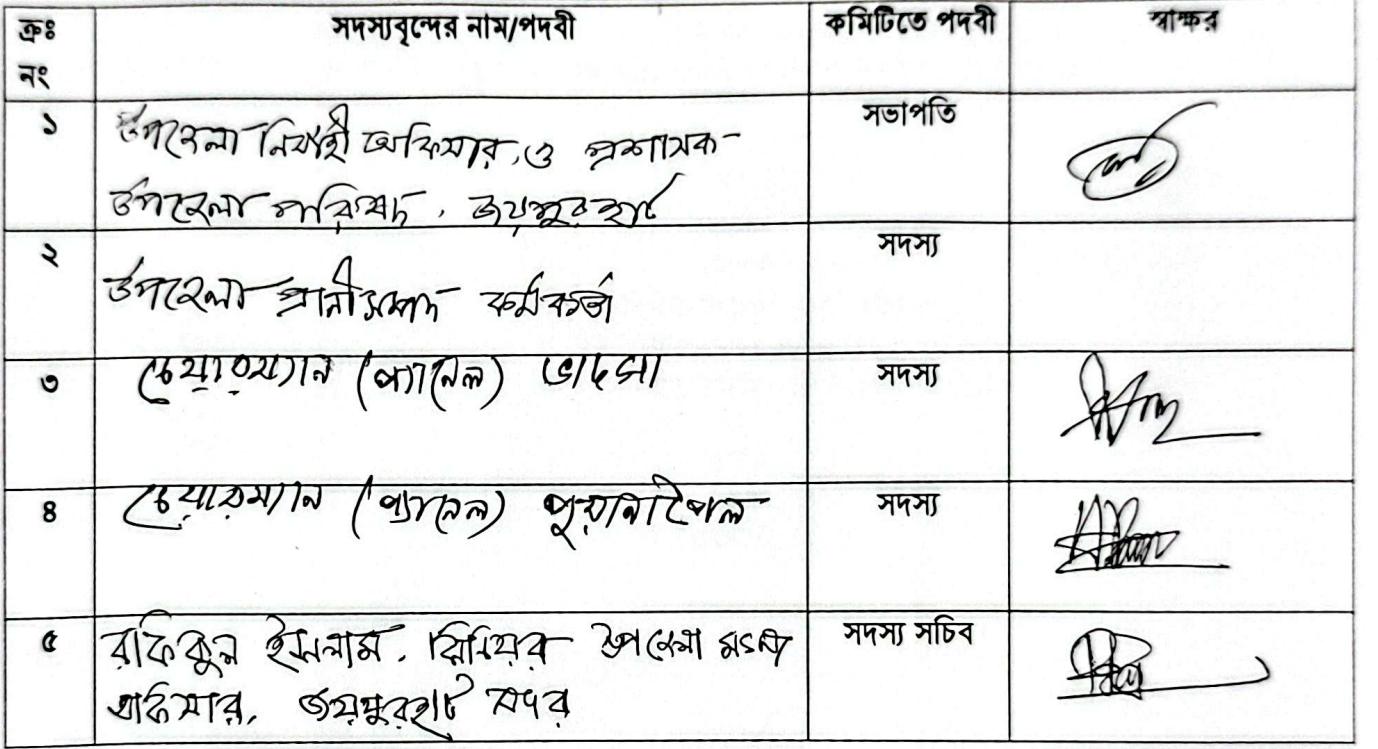 ক্রঃ নং সদস্যবৃন্দের নাম/পদবী কমিটিতে পদবী স্বাক্ষর
১ উপজেলা নির্বাহী অফিসার ও প্রশাসক সভাপতি
উপজেলা পরিষদ, জয়পুরহাট
২ উপজেলা প্রানীসম্পদ কর্মকর্তা সদস্য
৩ চেয়ারম্যান (প্যানেল) ভাদসা সদস্য
৪ চেয়ারম্যান (প্যানেল) পুরানাপৈল সদস্য
৫ রফিকুল ইসলাম, সিনিয়র উপজেলা মৎস্য সদস্য সচিব
অফিসার, জয়পুরহাট সদর